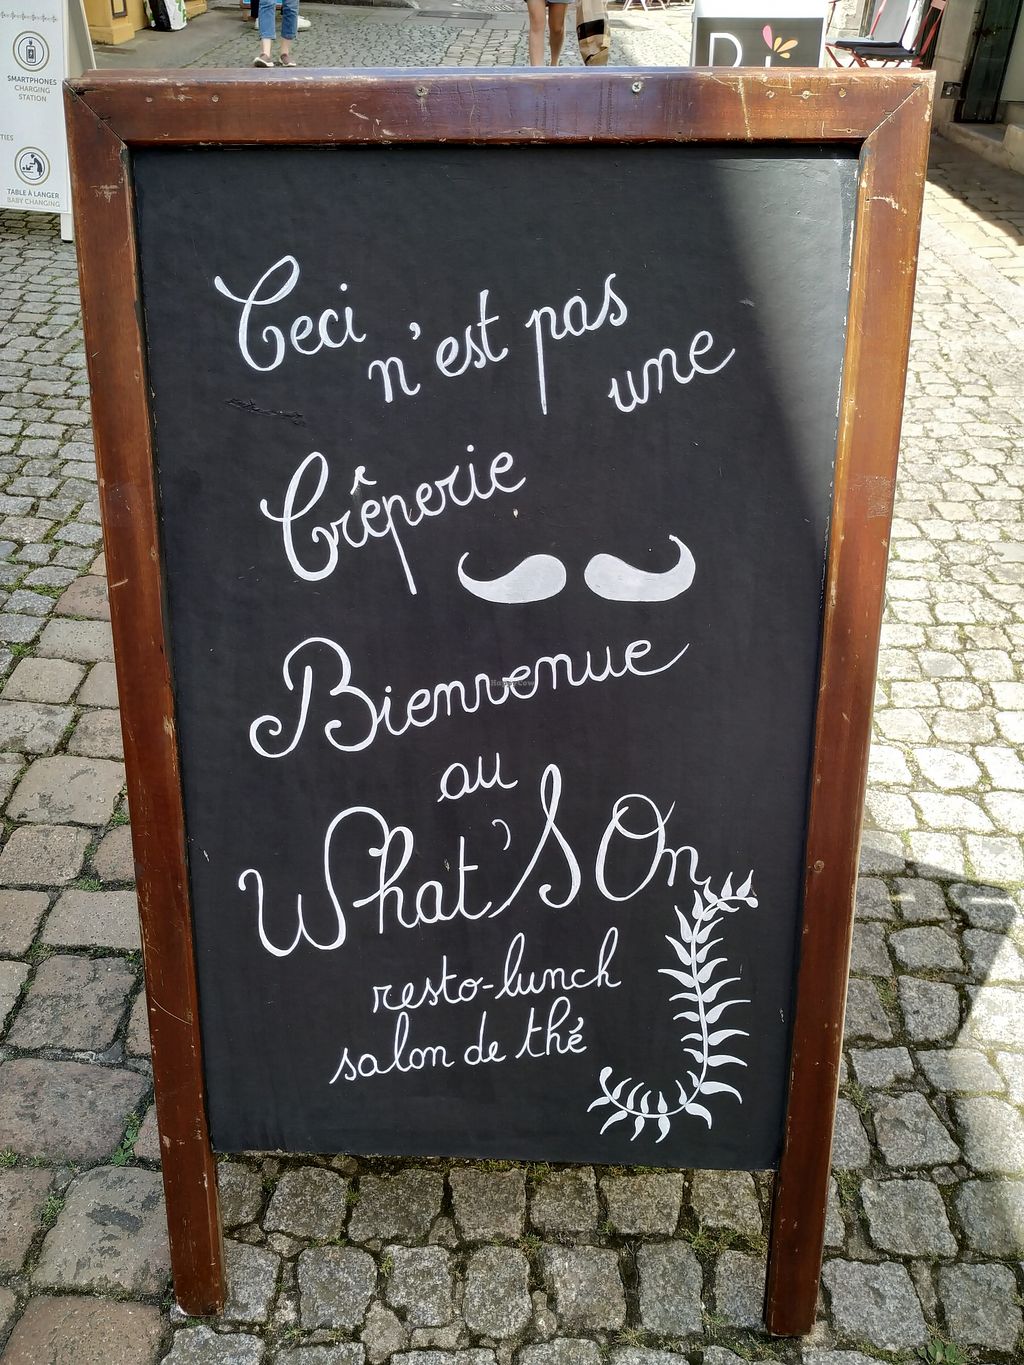 SMARTPHONES
CHARGING
STATION
TIES
TABLE À LANGER
BABY CHANGING
Ceci n'est pas une
Crêperie
Bienvenue
au
What'S On
resto-lunch
salon de thé
HappyCow